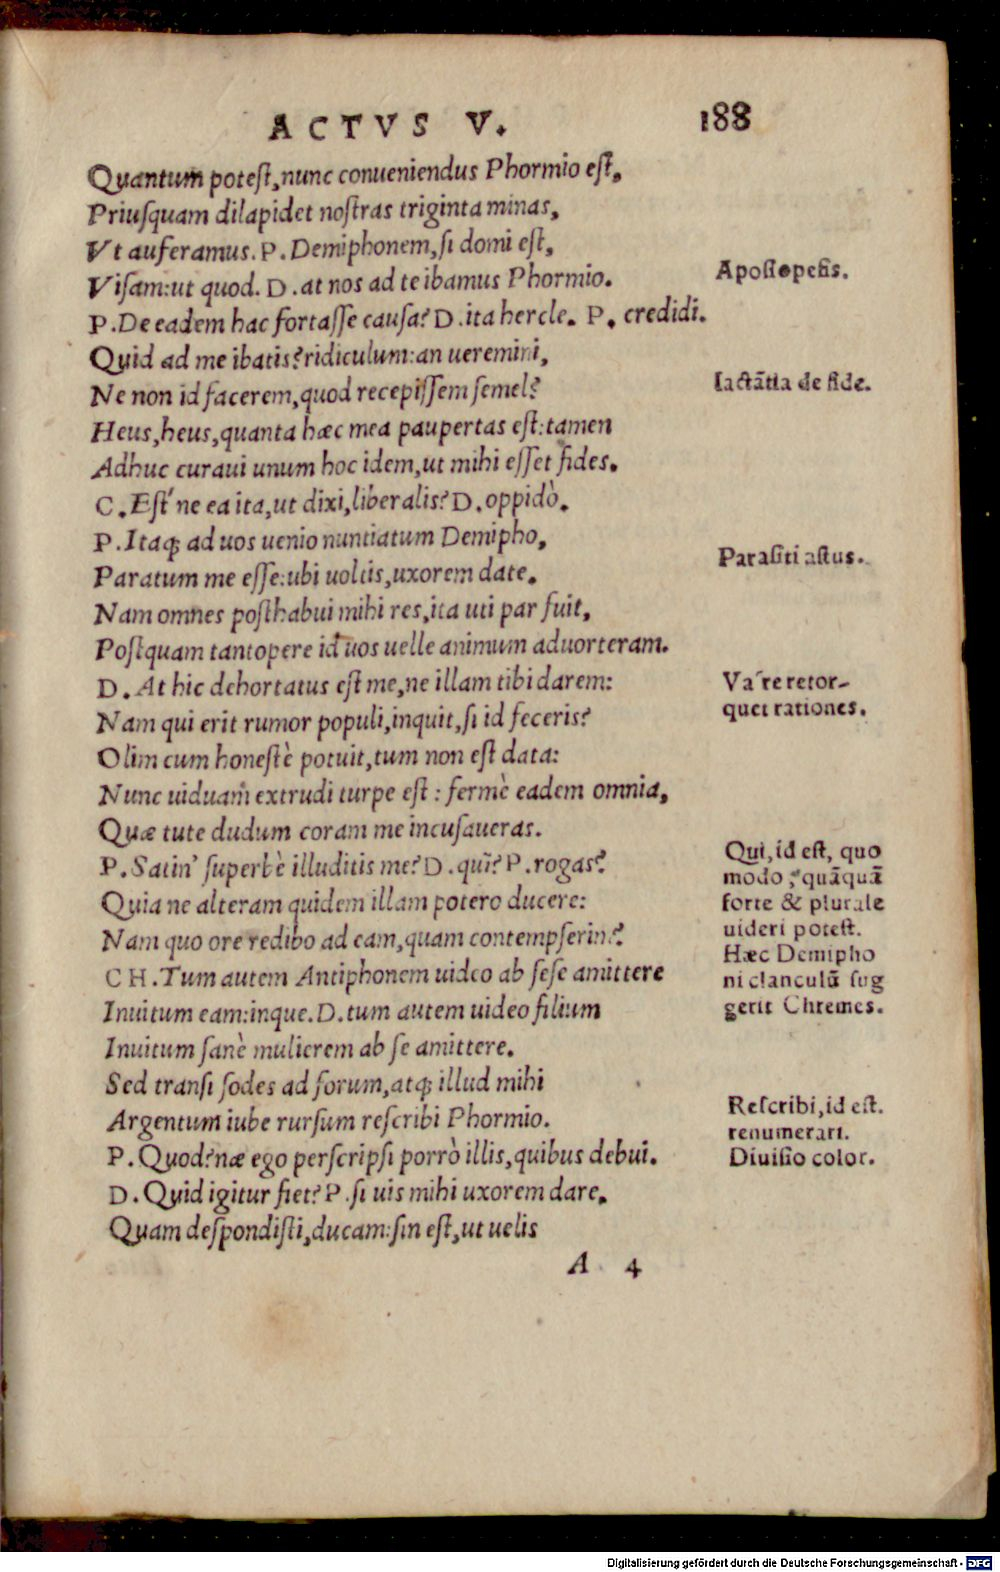 ACTVS V. 188
Quantum potest, nunc conueniendus Phormio est,
Priusquam dilapidet nostras triginta minas,
Vt auferamus. P. Demiphonem, si domi est,
Visam: ut quod. D. at nos ad te ibamus Phormio.
Aposiopesis.
P. De eadem hac fortasse causa? D. ita hercle. P. credidi.
Quid ad me ibatis? ridiculum: an ueremini,
Ne non id facerem, quod recepissem semel?
Iactātia de fide.
Heus, heus, quanta hæc mea paupertas est: tamen
Adhuc curaui unum hoc idem, ut mihi esset fides.
C. Est' ne ea ita, ut dixi, liberalis? D. oppidò.
P. Itaq; ad uos uenio nuntiatum Demipho,
Paratum me esse: ubi uoltis, uxorem date.
Parasiti astus.
Nam omnes posthabui mihi res, ita uti par fuit,
Postquam tantopere id uos uelle animum aduorteram.
D. At hic dehortatus est me, ne illam tibi darem:
Nam qui erit rumor populi, inquit, si id feceris?
Vafre retor-
quet rationes.
Olim cum honestè potuit, tum non est data:
Nunc uiduam extrudi turpe est: fermè eadem omnia,
Quæ tute dudum coram me incusaueras.
P. Satin' superbè illuditis me? D. quî? P. rogas?
Quia ne alteram quidem illam potero ducere:
Nam quo ore redibo ad eam, quam contempserim?
CH. Tum autem Antiphonem uideo ab sese amittere
Inuitum eam: inque. D. tum autem uideo filium
Qui, id est, quo
modo, quāquā
forte & plurale
uideri potest.
Hæc Demipho
ni clanculū sug
gerit Chremes.
Inuitum sanè mulierem ab se amittere.
Sed transi sodes ad forum, atq; illud mihi
Argentum iube rursum rescribi Phormio.
P. Quod? næ ego perscripsi porrò illis, quibus debui.
Rescribi, id est.
renumerari.
Diuisio color.
D. Quid igitur fiet? P. si uis mihi uxorem dare,
Quam despondisti, ducam: sin est, ut uelis
A 4
Digitalisierung gefördert durch die Deutsche Forschungsgemeinschaft - DFG